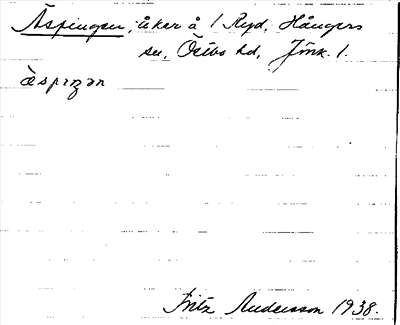 Äspingen, åker å 1 Ryd, Hångers
sn, Östbo hd, Jönk. l.
àspıŋən
Fritz Andersson 1938.